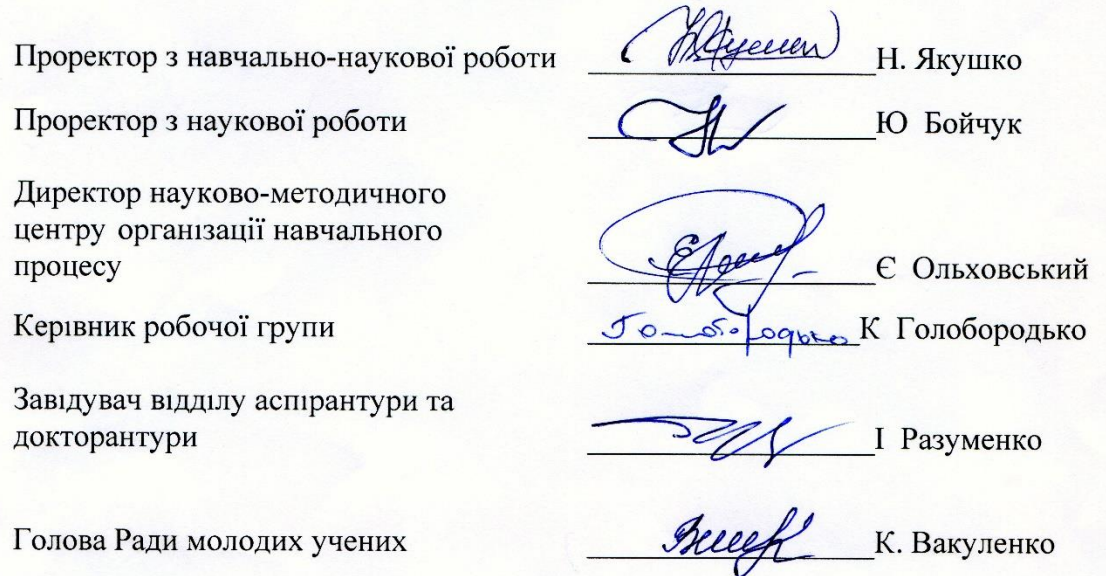 Проректор з навчально-наукової роботи Н. Якушко
Проректор з наукової роботи Ю Бойчук
Директор науково-методичного
центру організації навчального
процесу Є Ольховський
Керівник робочої групи Голобородько К Голобородько
Завідувач відділу аспірантури та
докторантури І Разуменко
Голова Ради молодих учених К. Вакуленко